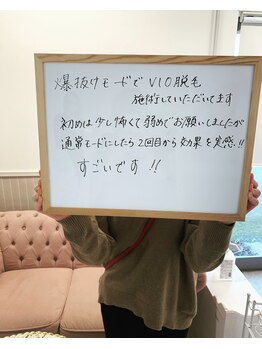 爆抜けモードで VIO脱毛
施術していただいてます
初めは少し怖くて弱めでお願いしましたが
通常モードにしたら2回目から効果を実感!!
すごいです!!